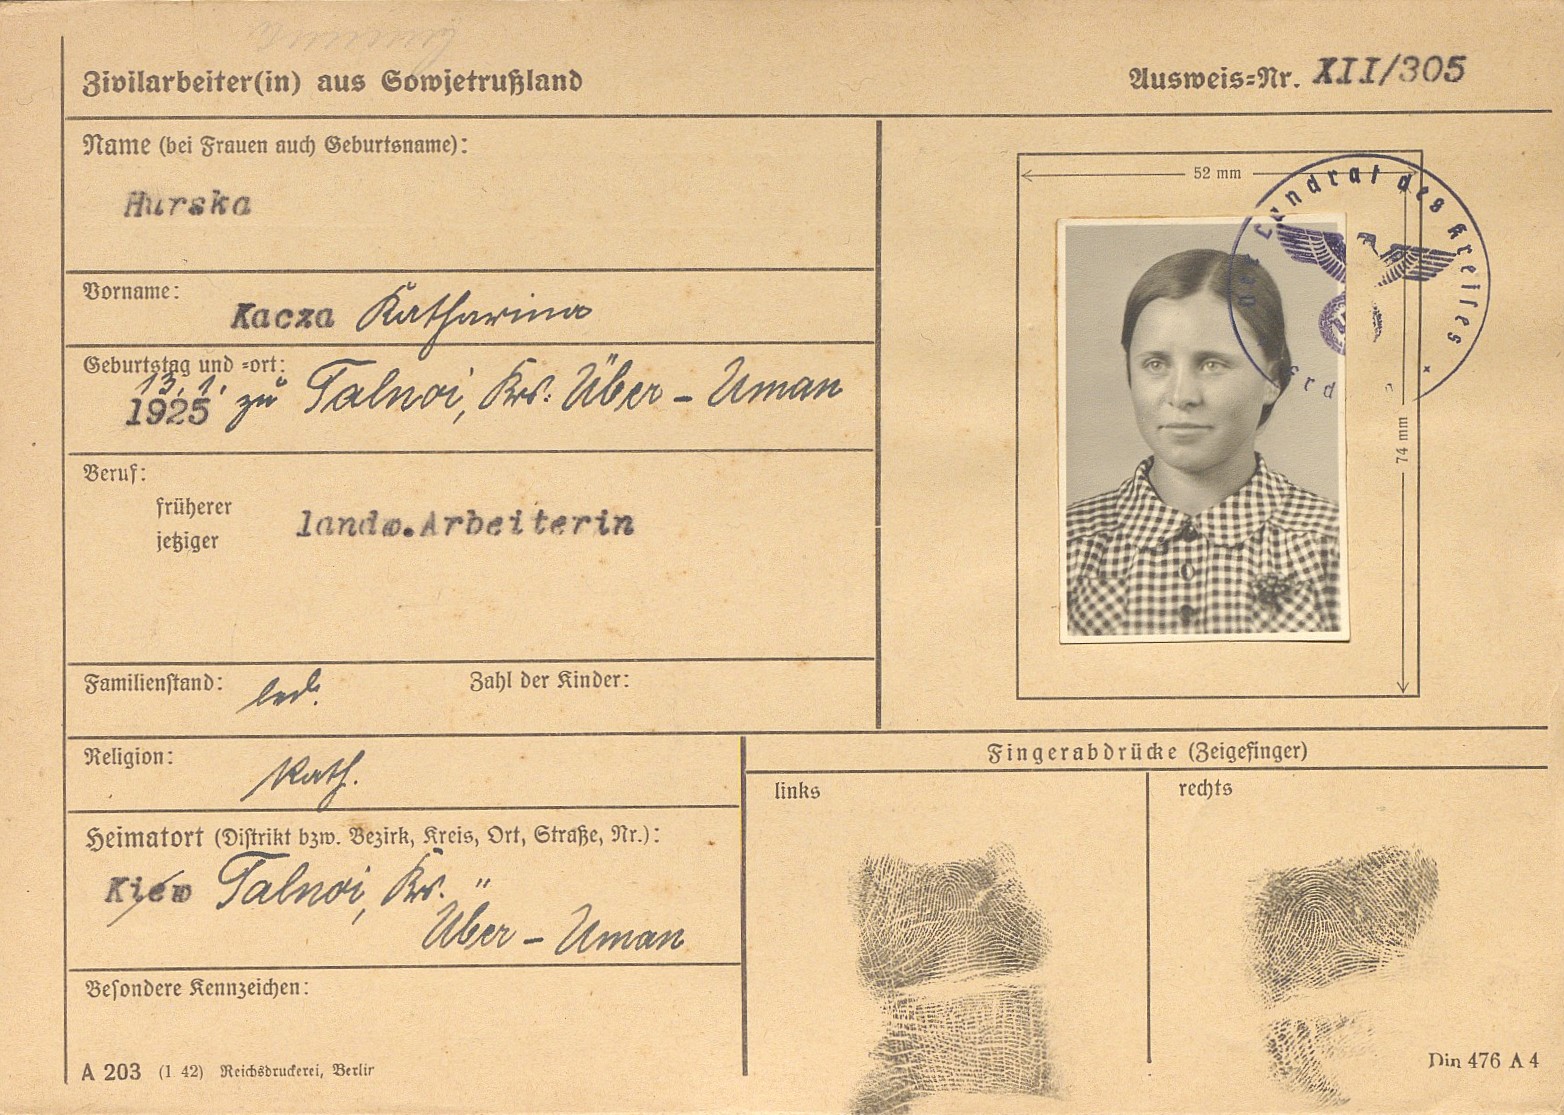 Zivilarbeiter(in) aus Sowjetrußland
Ausweis=Nr. XII/305
Name (bei Frauen auch Geburtsname):
Hurska
Vorname:
Kacza Katharina
Geburtstag und =ort:
13. 1.
1925 zu Talnoi, Krs. Über - Uman
Beruf:
früherer
jetziger
landw.Arbeiterin
Familienstand: led.
Zahl der Kinder:
Religion:
Kath.
Heimatort (Distrikt bzw. Bezirk, Kreis, Ort, Straße, Nr.):
Kiew Talnoi, Krs.
Über - Uman
Besondere Kennzeichen:
A 203 (1 42) Reichsdruckerei, Berlin
52 mm
74 mm
Der Landrat des Kreises
Fingerabdrücke (Zeigefinger)
links
rechts
Din 476 A 4